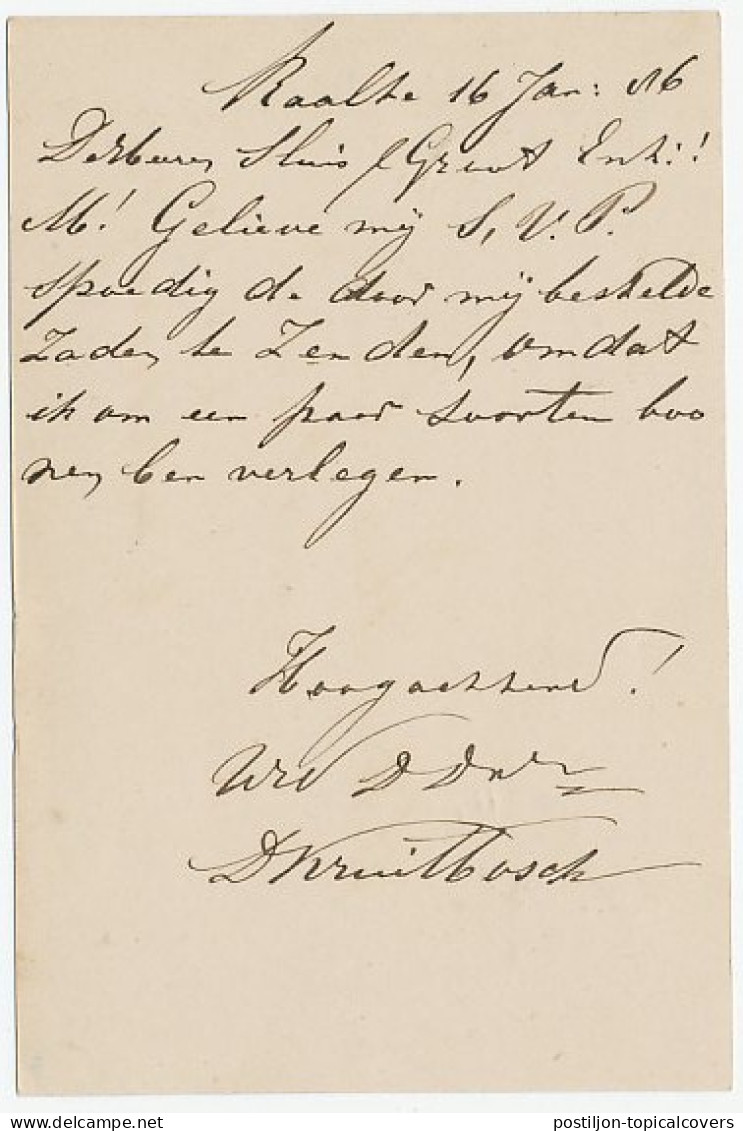 Raalte 16 Jan: 86
De Heeren Sluis & Groot Enkh:!
M! Gelieve mij S. V. P.
spoedig de door mij bestelde
Zaden te Zenden, omdat
ik om een paar soorten boo
nen ben verlegen.
Hoogachtend!
Uw D Dnr
D Kruitbosch
postiljon-topicalcovers